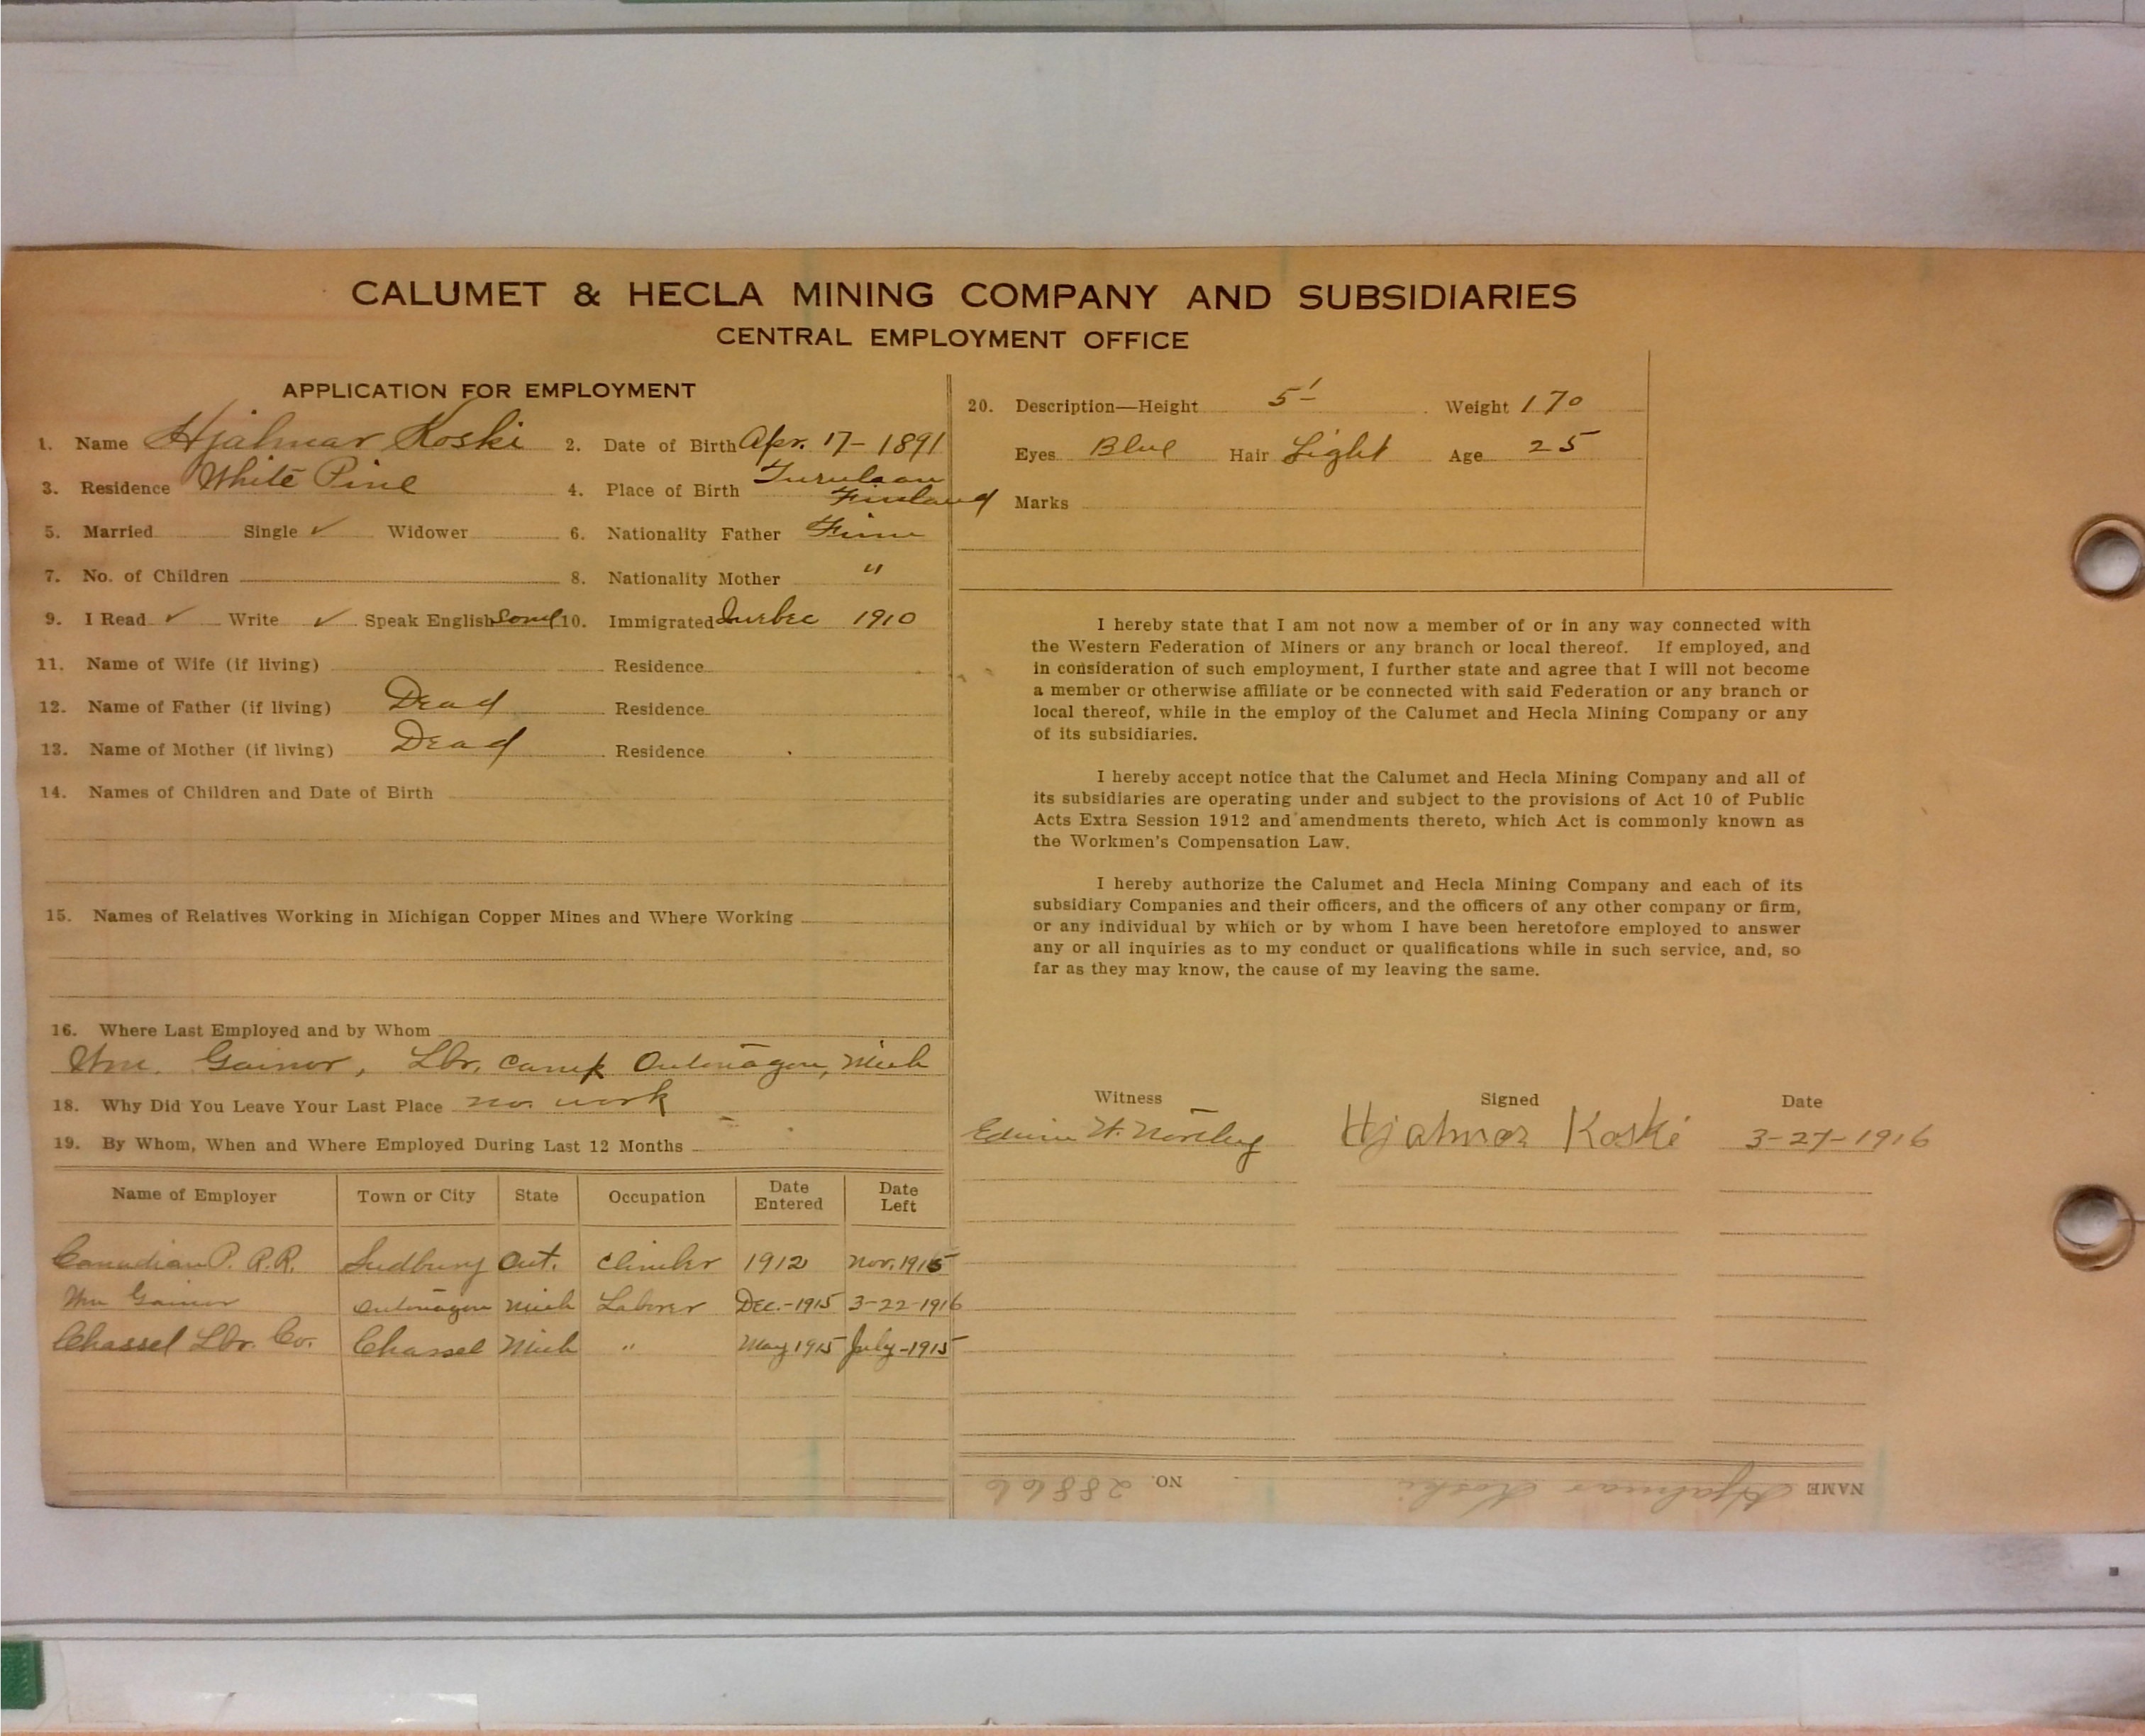 CALUMET & HECLA MINING COMPANY AND SUBSIDIARIES
CENTRAL EMPLOYMENT OFFICE
APPLICATION FOR EMPLOYMENT
1. Name Hjalmar Koski 2. Date of Birth Apr. 17-1891
3. Residence White Pine 4. Place of Birth Turulaan Finland
5. Married Single ✓ Widower 6. Nationality Father Finn
7. No. of Children 8. Nationality Mother "
9. I Read ✓ Write ✓ Speak English some 10. Immigrated Quebec 1910
11. Name of Wife (if living) Residence
12. Name of Father (if living) Dead Residence
13. Name of Mother (if living) Dead Residence
14. Names of Children and Date of Birth
15. Names of Relatives Working in Michigan Copper Mines and Where Working
16. Where Last Employed and by Whom
Wm. Gainor, Lbr. Camp Ontonagon, Mich
18. Why Did You Leave Your Last Place no work
19. By Whom, When and Where Employed During Last 12 Months
Name of Employer Town or City State Occupation Date Entered Date Left
Canadian P. R.R. Sudbury Ont. 1912 Nov. 1915
Wm Gainor Ontonagon Mich Laborer Dec.-1915 3-22-1916
Chassel Lbr. Co. Chassel Mich " May 1915 July-1915
20. Description—Height 5' Weight 170
Eyes Blue Hair Light Age 25
Marks
I hereby state that I am not now a member of or in any way connected with
the Western Federation of Miners or any branch or local thereof. If employed, and
in consideration of such employment, I further state and agree that I will not become
a member or otherwise affiliate or be connected with said Federation or any branch or
local thereof, while in the employ of the Calumet and Hecla Mining Company or any
of its subsidiaries.
I hereby accept notice that the Calumet and Hecla Mining Company and all of
its subsidiaries are operating under and subject to the provisions of Act 10 of Public
Acts Extra Session 1912 and amendments thereto, which Act is commonly known as
the Workmen's Compensation Law.
I hereby authorize the Calumet and Hecla Mining Company and each of its
subsidiary Companies and their officers, and the officers of any other company or firm,
or any individual by which or by whom I have been heretofore employed to answer
any or all inquiries as to my conduct or qualifications while in such service, and, so
far as they may know, the cause of my leaving the same.
Witness Signed Date
Edwin W. Hjalmar Koski 3-27-1916
NAME Hjalmar Koski NO. 28866